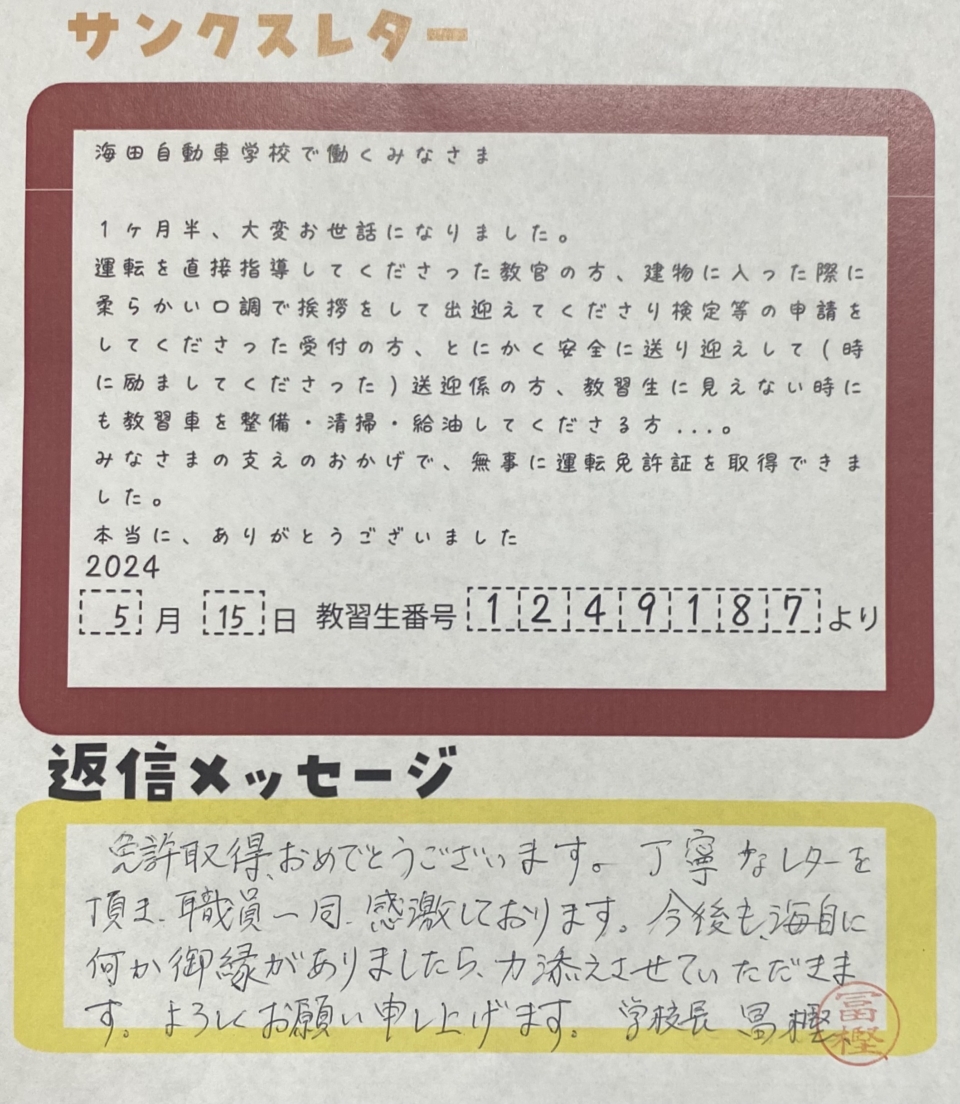 サンクスレター
海田自動車学校で働くみなさま
1ヶ月半、大変お世話になりました。
運転を直接指導してくださった教官の方、建物に入った際に
柔らかい口調で挨拶をして出迎えてくださり検定等の申請を
してくださった受付の方、とにかく安全に送り迎えして(時
に励ましてくださった)送迎係の方、教習生に見えない時に
も教習車を整備・清掃・給油してくださる方...。
みなさまの支えのおかげで、無事に運転免許証を取得できま
した。
本当に、ありがとうございました
2024
5月 15日 教習生番号 1249187 より
返信メッセージ
免許取得、おめでとうございます。丁寧なレターを
頂き、職員一同、感激しております。今後も、海自に
何か御縁がありましたら、力添えさせていただきま
す。よろしくお願い申し上げます。 学校長 冨樫
冨樫